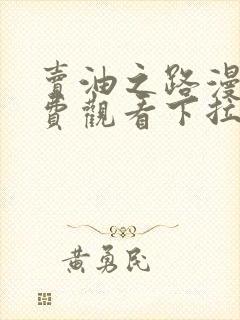 賣油之路漫
費觀看下拉
黃勇民